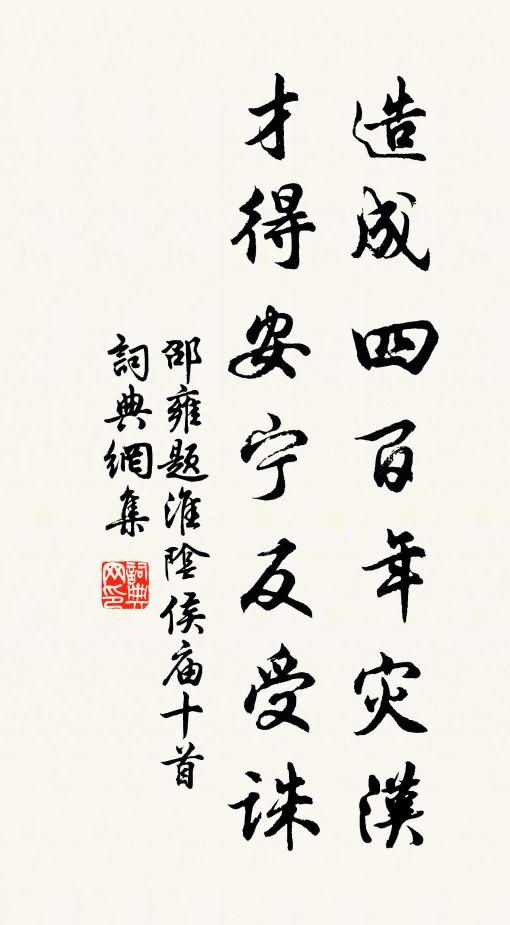 造成四百年灾漢
才得安宁反受誅
邵雍題淮陰侯庙十首
詞典網集
詞典网印